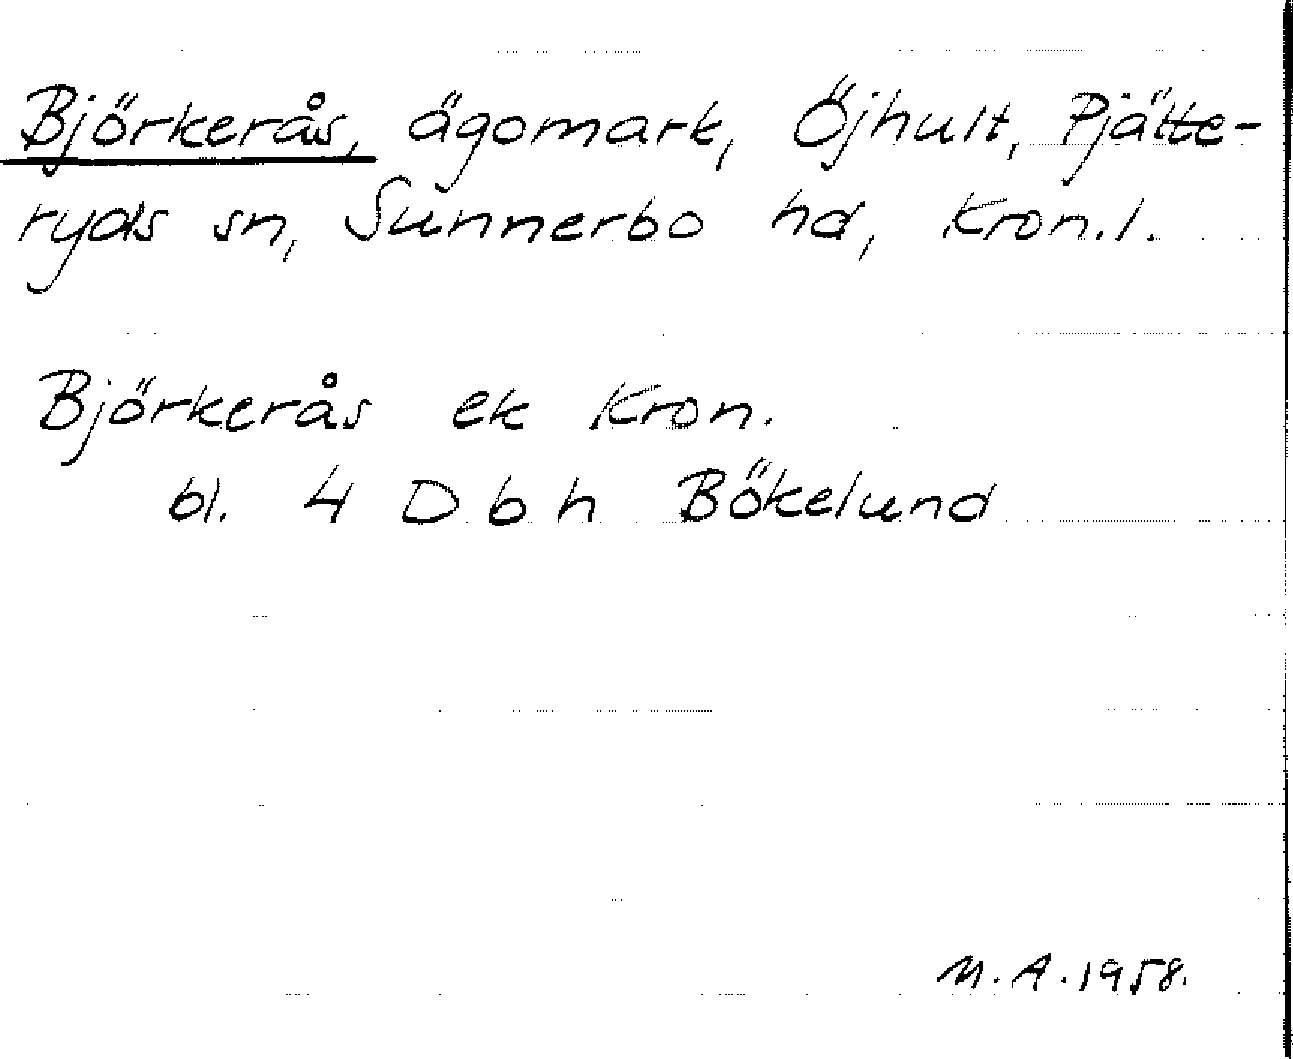 Björkerås, ägomark, Öjhult, Pjätte-
ryds sn, Sunnerbo hd, Kron.l.
Björkerås ek Kron.
bl. 4 D b h Bökelund
M.A.1958.